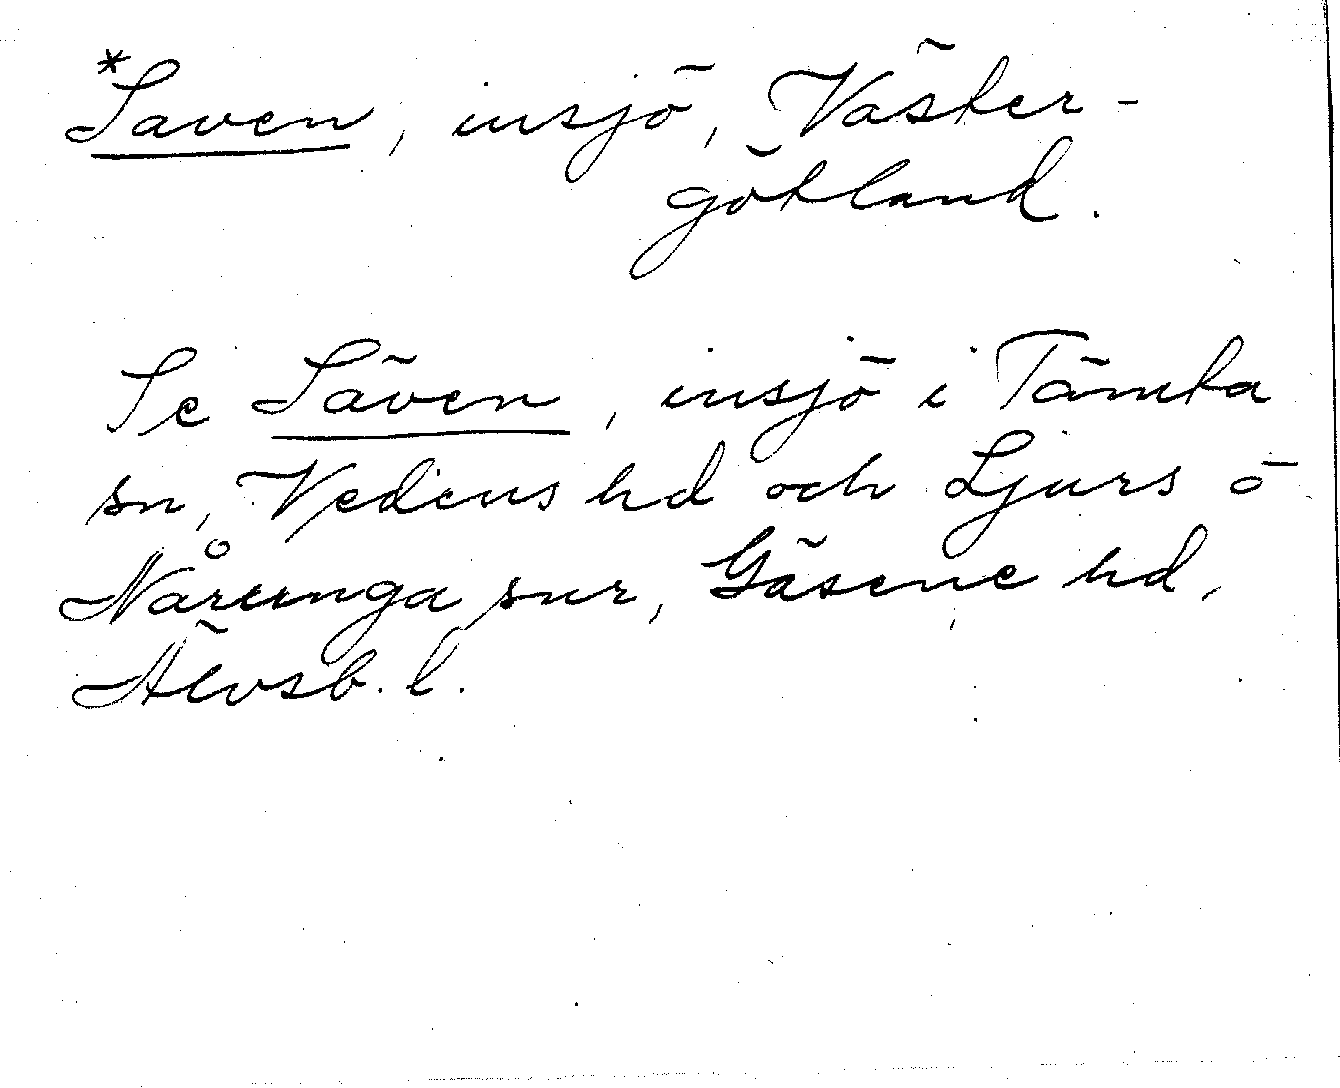 *Saven, insjö, Väster-
götland.
Se Säven, insjö i Tämta
sn, Vedens hd och Ljurs ö
Nårunga snr, Gäsene hd,
Älvsb. l.